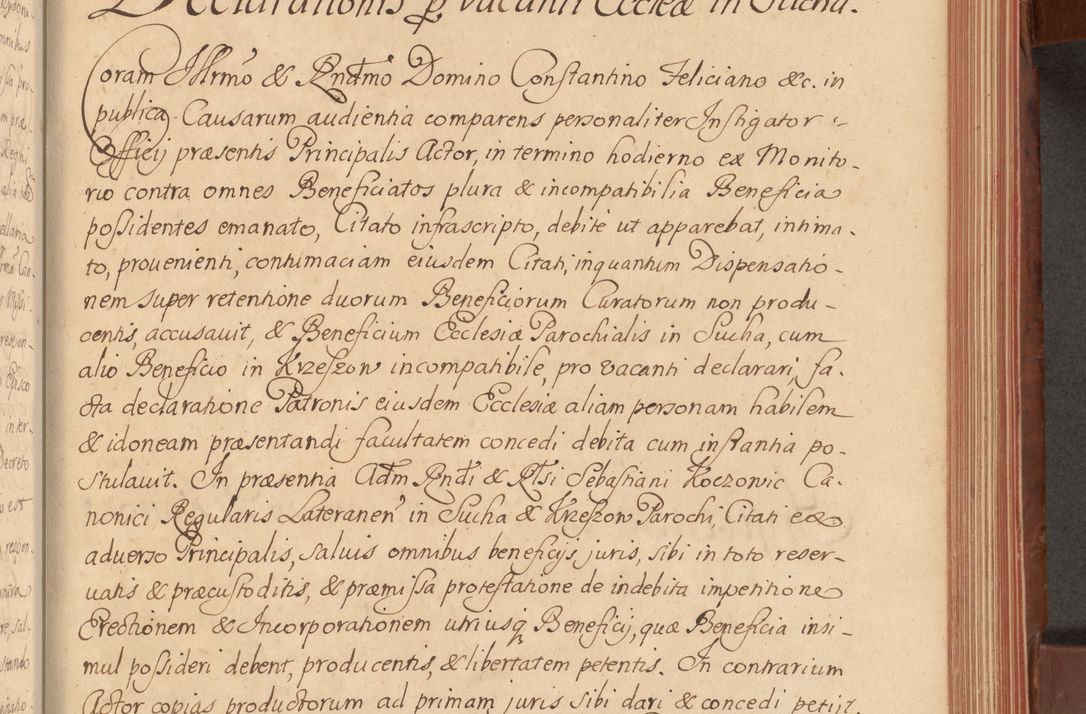 Declarationis p vacanti Eccleæ in Sucha.
Coram Illrmo & Rndmo Domino Constantino Feliciano &c. in
publica Causarum audientia comparens personaliter Instigator
Officij præsentis Principalis Actor, in termino hodierno ex Monito-
rio contra omnes Beneficiatos plura & incompatibilia Beneficia
possidentes emanato, Citato infrascripto, debitè ut apparebat, intima-
to, provenienti, contumaciam eiusdem Citati, inquantum Dispensatio-
nem super retentione duorum Beneficiorum Curatorum non produ-
centis, accusavit, & Beneficium Ecclesiæ Parochialis in Sucha, cum
alio Beneficio in Krzeszow incompatibile, pro vacanti declarari, fa-
cta declaratione Patronis eiusdem Ecclesiæ aliam personam habilem
& idoneam præsentandi facultatem concedi debita cum instantia po-
stulavit. In præsentia Adm Rndi & Rlsi Sebastiani Koczowic Ca-
nonici Regularis Lateranen in Sucha & Krzeszow Parochi, Citati ex
adverso Principalis, salvis omnibus beneficijs, juris, sibi in toto reser-
vatis & præcustoditis, & præmissa protestatione de indebita impetitione
Erectionem & Incorporationem utriusq Beneficij, quæ Beneficia insi-
mul possideri debent, producentis, & libertatem petentis. In contrarium
Actor copias productorum ad primam juris sibi dari & concedi petijt.